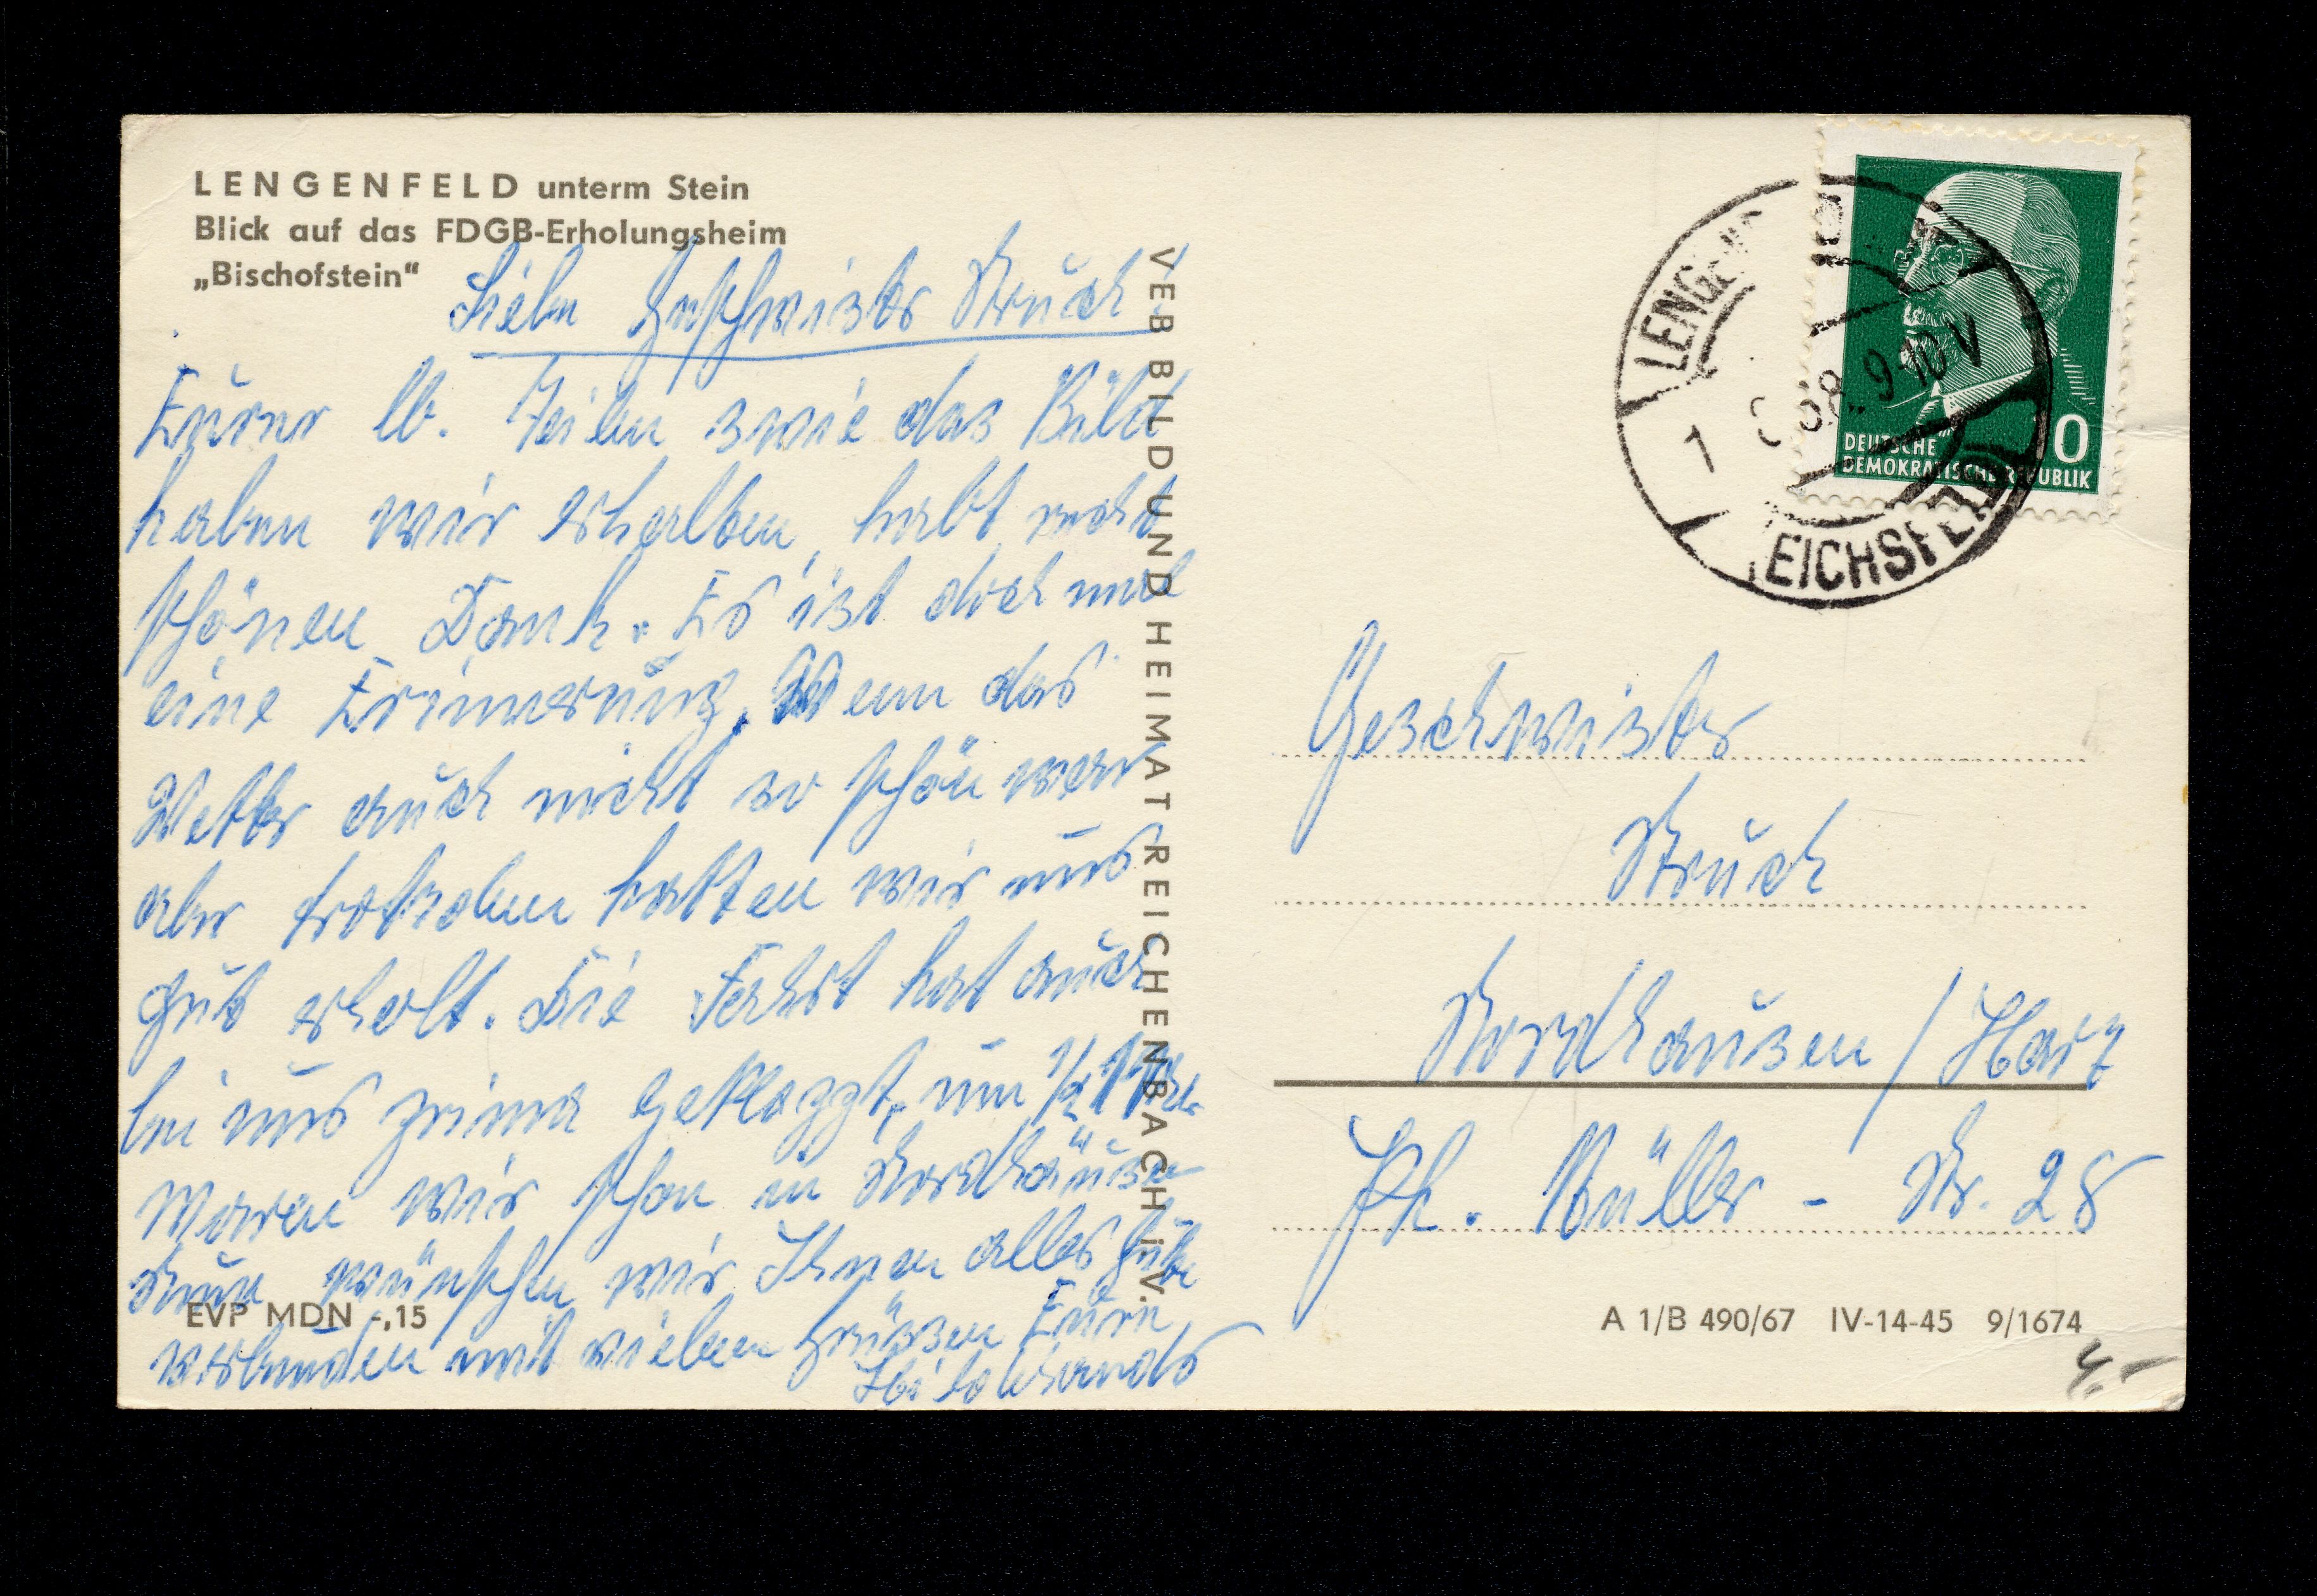 LENGENFELD unterm Stein
Blick auf das FDGB-Erholungsheim
„Bischofstein“
Lieben Geschwister Struck
Euren lb. Zeilen swie das Bild
haben wir erhalten, habt recht
schönen Dank. Es ist doch mal
eine Erinnerung. Wenn das
Wetter auch nicht so schön war
aber trotzdem hatten wir uns
gut erholt. Die Fahrt hat auch
bei uns prima geklappt, um 1/2
waren wir schon in Nordhausen
Nun wünschen wir Ihnen alles gute
verbunden mit vielen Grüssen Eure
Hildebrands
EVP MDN -,15
VEB BILD UND HEIMAT REICHENBACH i. V.
DEUTSCHE
DEMOKRATISCHE REPUBLIK
LENGENF
9-10 V
1
EICHSFELD
Geschwister
Struck
Nordhausen / Harz
Ph. Müller - Str. 28
A 1/B 490/67 IV-14-45 9/1674
4.-